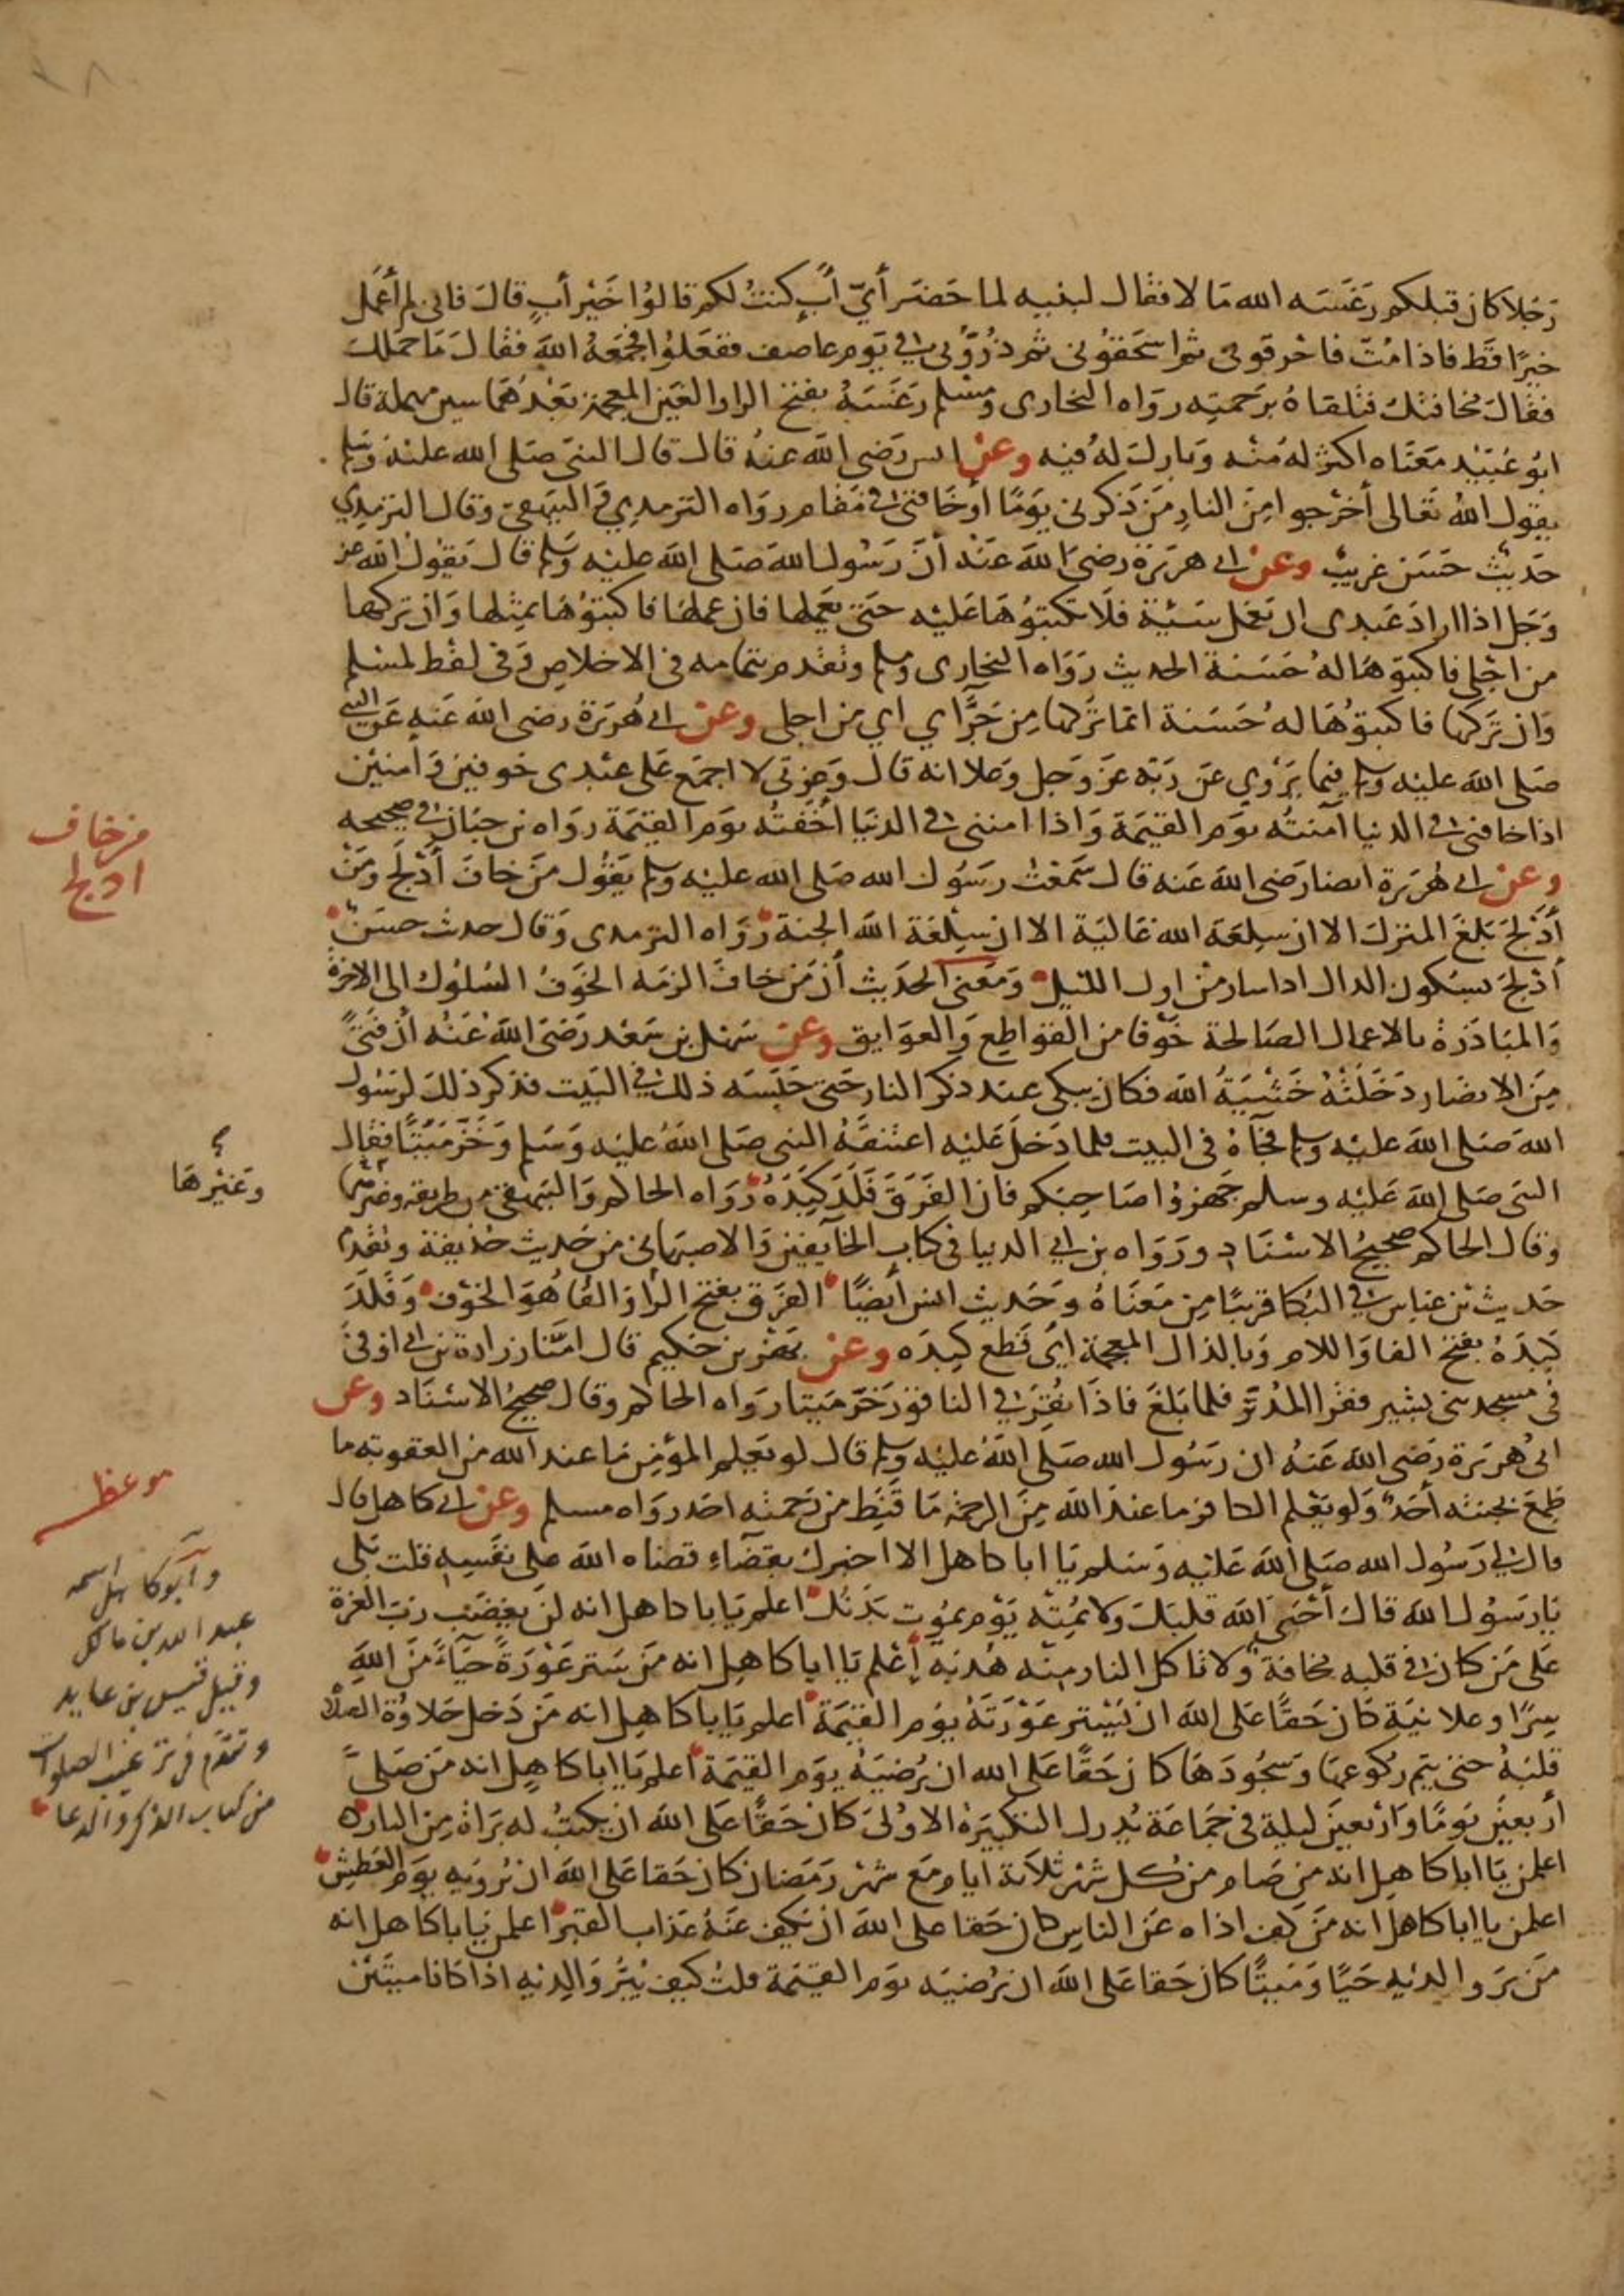 رجلا كان قبلكم رغسه الله مالا فقال لبنيه لما حضر أيّ أبٍ كنتُ لكم قالوا خَيْر أبٍ قال فانى لم أعمل
خيرًا قط فاذا مُتّ فاحرقونى ثم اسحقونى ثم ذرُّونى فى يوم عاصف ففعلوا فجمعهُ الله فقال ما حملك
فقال مخافتك فتلقاهُ برحمته رواه البخارى ومسلم رغسهُ بفتح الرا والغين المعجمة بعدهما سين مهملة قال
ابو عُبَيْد معناه اكثر له منه وبارك لهُ فيه وعن انس رضى الله عنهُ قال قال النبى صلى الله عليه وسلم
يقول اللهُ تعالى أخرجوا من النار من ذكرنى يومًا أو خافنى فى مقام رواه الترمدي والبيهقى وقال الترمذي
حديث حسن غريبٌ وعن ابى هريرة رضى الله عنه أن رسول الله صلى الله عليه وسلم قال يقول الله عز
وجل اذا اراد عبدى ان يعمل سيئة فلا تكتبوُها عليه حتى يعملها فان عملها فاكتبوُها بمثلها وان تركها
من اجلى فاكتبوها لهُ حسنة الحديث رواه البخارى ومسلم وتقدم بتمامه فى الاخلاص وفى لفظ لمسلم
وان تركها فاكتبوُها لهُ حسنة انما تركها من جرَّاي اي من اجلى وعن ابى هُريرة رضى الله عنه عن النبى
صلى الله عليه وسلم فيما يروي عن ربه عز وجل وعلا انه قال وعزتى لا اجمع على عبدى خوفين وامنين
اذا خافنى فى الدنيا آمنتُه يوم القيمة واذا امننى فى الدنيا أخفتُه يوم القيمة رواه بن حبان فى صحيحه
وعن ابى هُريرة ايضا رضى الله عنه قال سَمعتُ رسُول الله صلى الله عليه وسلم يقُول من خاف أدْلج ومن
أدلج بلغ المنزل الا ان سلعة الله غالية الا ان سلعة الله الجنة رواه الترمدى وقال حديث حسن
أدلج بسكون الدال اذا سار من اول الليل ومعنى الحديث أن من خاف الزمه الخوف السُلوك الى الاخرة
والمبادرة بالاعمال الصالحة خوفا من القواطع والعوايق وعن سهل بن سعد رضى الله عنه أن فتىً
من الانصار دخلتهُ خشيةُ الله فكان يبكى عند ذكر النار حتى حبسه ذلك فى البيت فذكر ذلك لرسول
الله صلى الله عليه وسلم فجآهُ فى البيت فلما دخل عليه اعتنقهُ النبى صلى الله عليه وسلم وخرّ ميتًا فقال
النبى صلى الله عليه وسلم جهزوُا صاحبكم فان الفرَق فلذ كبدهُ رواه الحاكم والبيهقى من طريقه
وقال الحاكم صحيحُ الاسناد ورواه بن ابى الدنيا فى كتاب الخآيفين والاصبهانى من حديث حُذيفة وتقدم
حديث بن عباس فى البُكا قريبًا من معناهُ وحديث انس أيضًا الفرَق بفتح الرا والفا هُو الخوف وفلذ
كبدهُ بفتح الفا واللام وبالذال المعجمة أى قطع كبده وعن بهز بن حكيم قال امّنا زرارة بن ابى اوفى
فى مسجد بنى بشير فقرا المُدثر فلما بلغ فاذا نُقرَ فى الناقور خرّ ميتا رواه الحاكم وقال صحيح الاسناد وعن
ابى هُريرة رضى الله عنهُ ان رسول الله صلى الله عليه وسلم قال لو يعلم المؤمن ما عند الله من العقوبه ما
طمع بجنته أحدٌ ولو يعلم الكافر ما عند الله من الرحمة ما قَنِط من رحمته احد رواه مسلم وعن ابى كاهل قال
قال لى رسول الله صلى الله عليه وسلم يا ابا كاهل الا اخبرك بقضآءِ قضاه الله على نفسه قلت بلى
يا رسول الله قال أحيى الله قلبك ولا يُمتْه يوم يموت بدنُك اعلم يا ابا كاهل انه لن يغضب ربّ العزة
على من كان فى قلبه مخافة ولا تاكل النار منه هُدبة إعلم يا ابا كاهل انه من ستر عورةً حيآءً من الله
سرًا وعلانية كان حقًا على الله ان يَستر عورتهُ يوم القيمة اعلم يا ابا كاهل انه من دخل حلاوةُ الصلاة
قلبهُ حتى يتم ركوعها وسجودها كان حقًا على الله ان يُرضيهُ يوم القيمة اعلم يا ابا كاهل انه من صلىَّ
أربعين يومًا واربعين ليلة فى جماعة يُدرك التكبيرة الاولى كان حقًا على الله ان يكتبُ له براةً من النار
اعلمن يا ابا كاهل انه من صام من كل شهر ثلاثة ايام مع شهر رمضان كان حقا على الله ان يُرويه يوم العَطش
اعلمن يا ابا كاهل انه من كف اذاه عن الناس كان حقا على الله ان يكف عنهُ عذاب القبر اعلمن يا ابا كاهل انه
من بَرّ والديه حيًا وميتًا كان حقا على الله ان يُرضيَه يوم القيمة قلتُ كيف يَبَرُّ والديه اذا كانا ميتَين
من خاف
ادلج
وغيرها
موعظه
وآبو كاهل اسمه
عبد الله بن مالك
وقيل قيس بن عايد
وتقدم فى ترغيب الصلوات
من كتاب الذكر والدعا